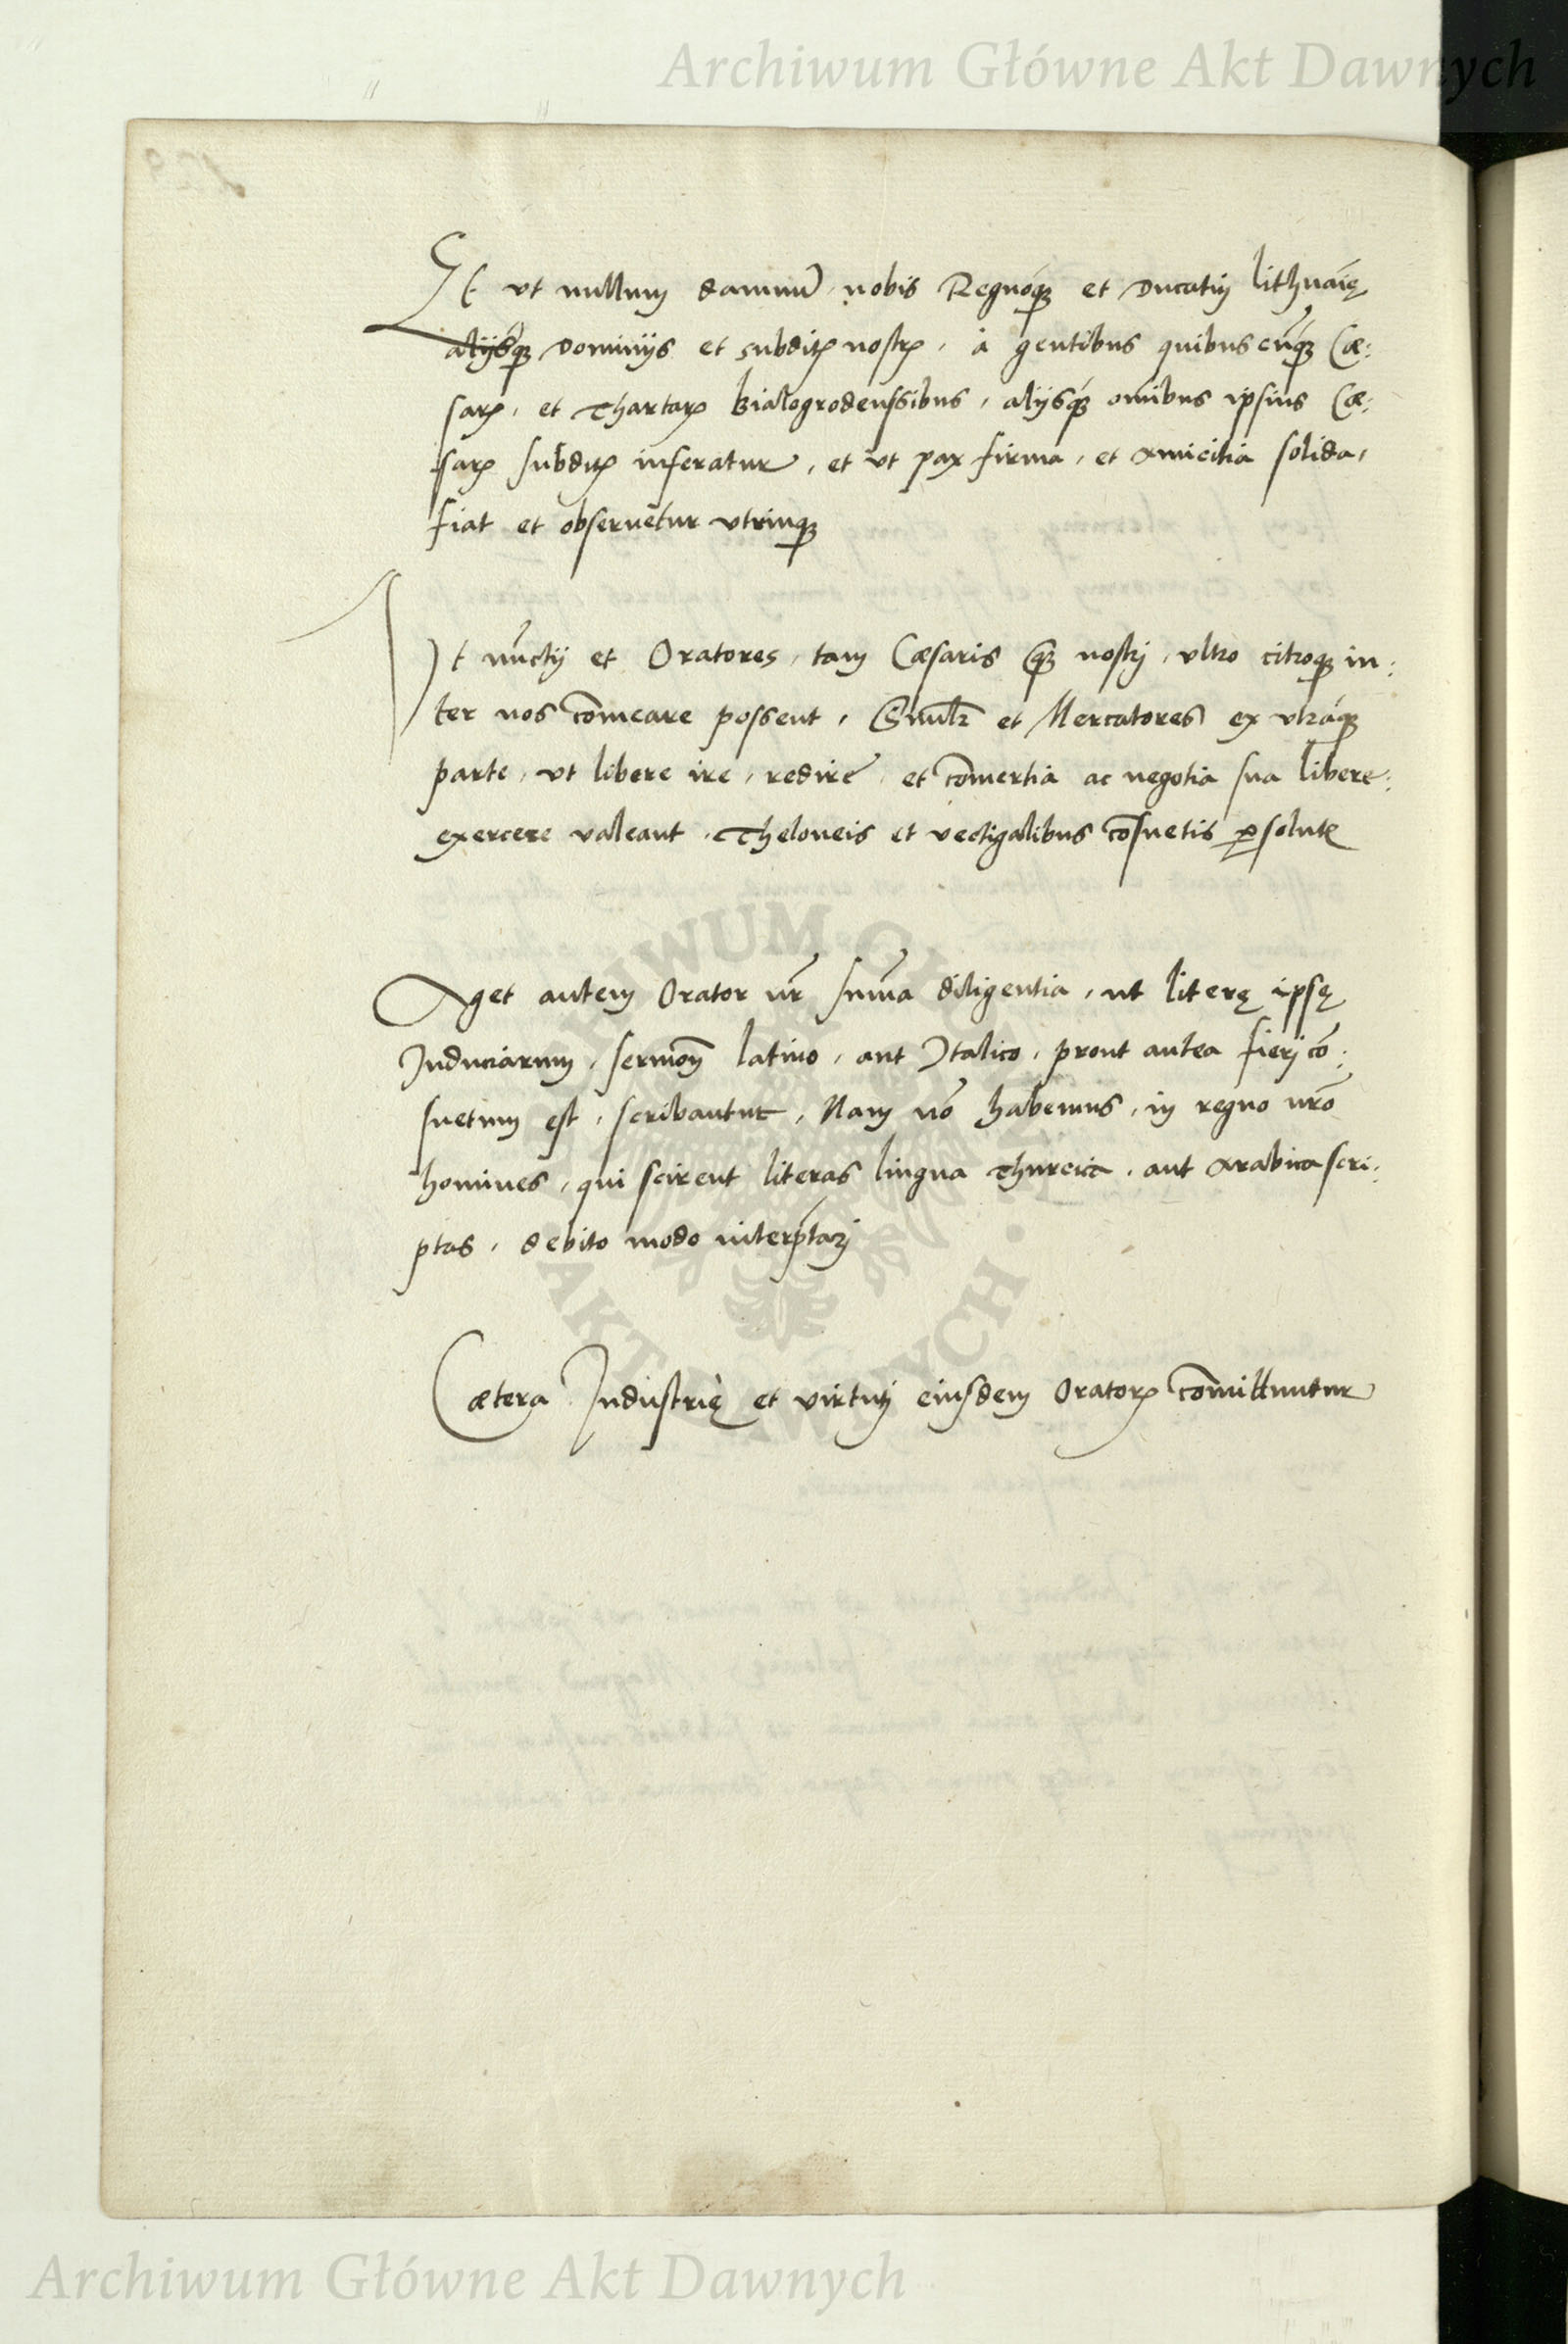 Archiwum Główne Akt Dawnych
Et vt nullum damnū nobis Regnoq́ꝫ et Ducatuj lithuaīę
alijsq́ꝫ Dominijs et subditꝭ nostrꝭ, à gentibus quibuscūq́ꝫ Cæ:
sarꝭ, et Thartarꝭ Bialogrodenssibus, alijsq́ꝫ om̄ibus ipsius Cæ:
sarꝭ subditꝭ inferatur, et vt pax firma, et amicitia solida,
fiat et obseruētur vtrinqꝫ
It nūctij et Oratores, tam Cæsaris qꝫ nostrj, vltro citroqꝫ in:
ter nos com̄eare possent, Simulr et Mercatores ex vtráqꝫ
parte, vt libere ire, redire, et com̄ertia ac negotia sua libere:
exercere valeant, Theloneis et vectigalibus cōsuetis ꝑsolutꝭ
Aget autem Orator nr̄ sum̄a diligentia, ut literę ipsę
Induciarum, sermonj latino, aut Italico, prout antea fierj cō:
suetum est, scribantur, Nam nō habemus, in regno nrō
homines, qui scirent literas lingua Thurcica, aut Arabica scri:
ptas, debito modo interp̄tarj
Cætera Industrię et virtutj eiusdem Oratorꝭ com̄ittuntur
ARCHIWUM GŁÓWNE AKT DAWNYCH
Archiwum Główne Akt Dawnych